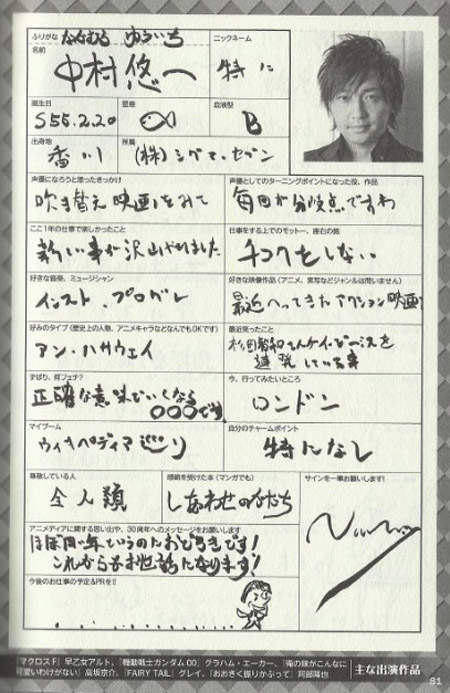 ふりがな なかむら ゆういち
ニックネーム
名前 中村悠一
特に
誕生日
星座
血液型
S55.2.20
B
出身地
所属
香川
(株)シグマ・セブン
声優になろうと思ったきっかけ
声優としてのターニングポイントになった役、作品
吹き替え映画をみて
毎回が分岐点ですわ
ここ1年の仕事で楽しかったこと
仕事をする上でのモットー、座右の銘
新しい事が沢山やれました
チコクをしない
好きな音楽、ミュージシャン
好きな映像作品(アニメ、実写などジャンルは問いません)
インスト、プログレ
最近へってきたアクション映画
好みのタイプ(歴史上の人物、アニメキャラとなんでもOKです)
最近笑ったこと
アン・ハサウェイ
杉田智和さんが
連発している事
ずばり、何フェチ?
今、行ってみたいところ
正確な意味でいくなら
○○○です
ロンドン
マイブーム
自分のチャームポイント
ウィキペディア巡り
特になし
尊敬している人
感銘を受けた本(マンガでも)
サインを一筆お願いします!
全人類
しあわせのかたち
アニメディアに関する思い出や、30周年へのメッセージをお願いします
ほぼ同い年というのにおどろきです!
これからもお世話になります!
今後のお仕事の予定&PRを!!
『マクロスF』早乙女アルト、『機動戦士ガンダム00』グラハム・エーカー、『俺の妹がこんなに
可愛いわけがない』高坂京介、『FAIRY TAIL』グレイ、『おおきく振りかぶって』阿部隆也
主な出演作品
81